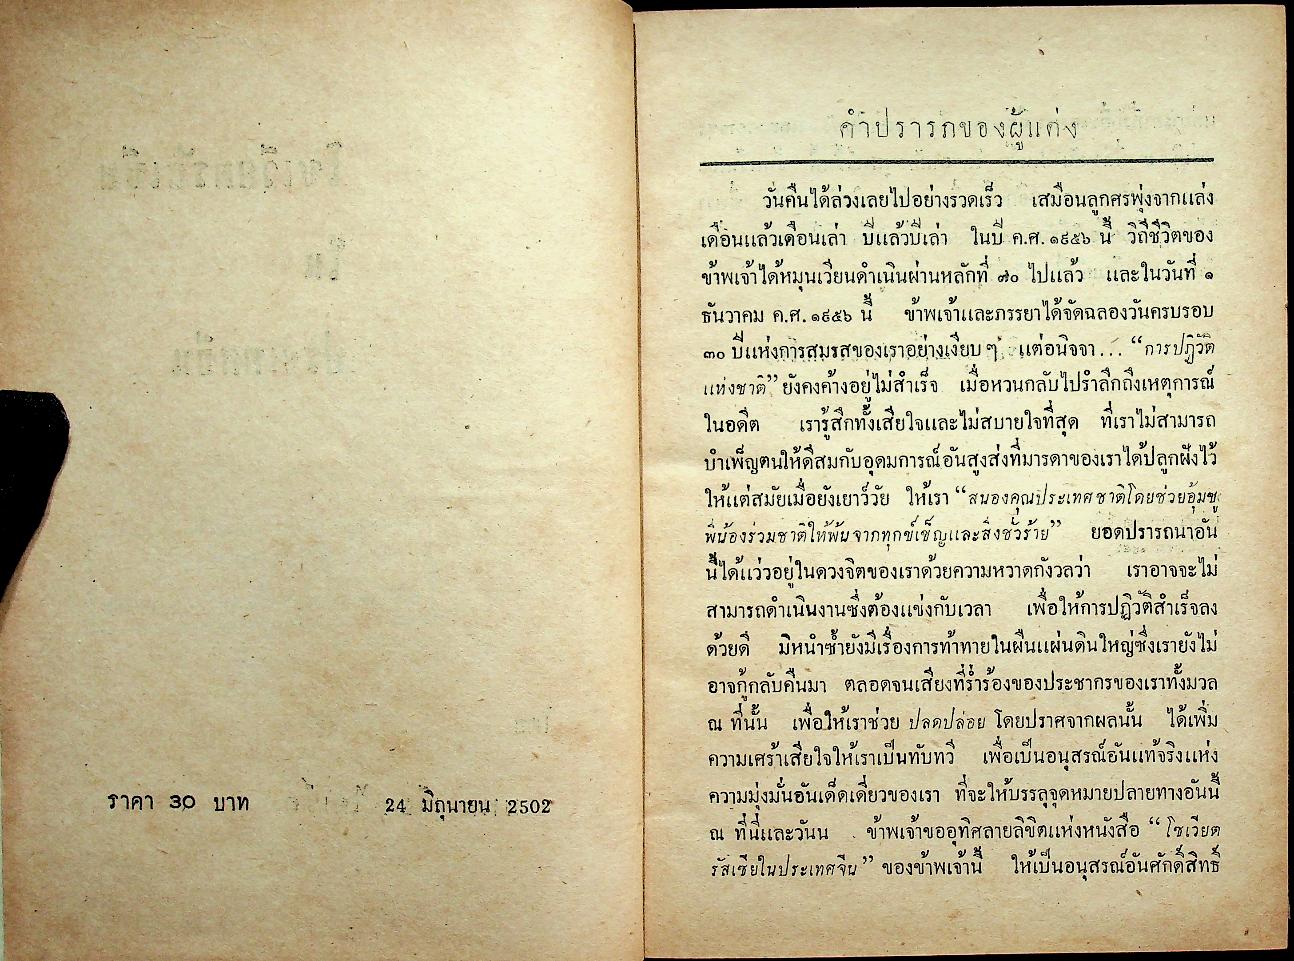 ราคา 30 บาท
24 มิถุนายน 2502
คำปรารภของผู้แต่ง
วันคืนได้ล่วงเลยไปอย่างรวดเร็ว เสมือนลูกศรพุ่งจากแล่ง
เดือนแล้วเดือนเล่า ปีแล้วปีเล่า ในปี ค.ศ. ๑๙๕๖ นี้ วิถีชีวิตของ
ข้าพเจ้าได้หมุนเวียนดำเนินผ่านหลักที่ ๗๐ ไปแล้ว และในวันที่ ๑
ธันวาคม ค.ศ. ๑๙๕๖ นี้ ข้าพเจ้าและภรรยาได้จัดฉลองวันครบรอบ
๓๐ ปีแห่งการสมรสของเราอย่างเงียบ ๆ แต่อนิจจา... “การปฏิวัติ
แห่งชาติ” ยังคงค้างอยู่ไม่สำเร็จ เมื่อหวนกลับไปรำลึกถึงเหตุการณ์
ในอดีต เรารู้สึกทั้งเสียใจและไม่สบายใจที่สุด ที่เราไม่สามารถ
บำเพ็ญตนให้ดีสมกับอุดมการณ์อันสูงส่งที่มารดาของเราได้ปลูกฝังไว้
ให้แต่สมัยเมื่อยังเยาว์วัย ให้เรา “สนองคุณประเทศชาติโดยช่วยอุ้มชู
พี่น้องร่วมชาติให้พ้นจากทุกข์เข็ญและสิ่งชั่วร้าย” ยอดปรารถนาอัน
นี้ได้แว่วอยู่ในดวงจิตของเราด้วยความหวาดกังวลว่า เราอาจจะไม่
สามารถดำเนินงานซึ่งต้องแข่งกับเวลา เพื่อให้การปฏิวัติสำเร็จลง
ด้วยดี มิหนำซ้ำยังมีเรื่องการท้าทายในผืนแผ่นดินใหญ่ซึ่งเรายังไม่
อาจกู้กลับคืนมา ตลอดจนเสียงที่ร่ำร้องของประชากรของเราทั้งมวล
ณ ที่นั้น เพื่อให้เราช่วย ปลดปล่อย โดยปราศจากผลนั้น ได้เพิ่ม
ความเศร้าเสียใจให้เราเป็นทับทวี เพื่อเป็นอนุสรณ์อันแท้จริงแห่ง
ความมุ่งมั่นอันเด็ดเดี่ยวของเรา ที่จะให้บรรลุจุดหมายปลายทางอันนี้
ณ ที่นี่และวันน ข้าพเจ้าขออุทิศลายลิขิตแห่งหนังสือ “โซเวียต
รัสเซียในประเทศจีน” ของข้าพเจ้านี้ ให้เป็นอนุสรณ์อันศักดิ์สิทธิ์